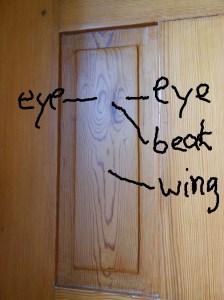 eye eye
beak
wing